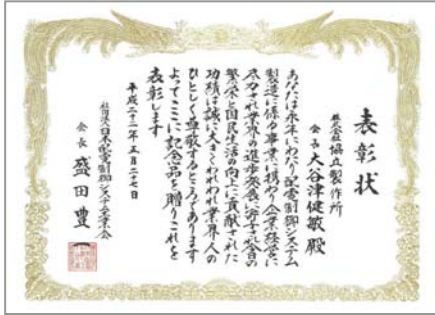 表彰状
株式会社 協立製作所
会長 大谷津健敏 殿
あなたは永年にわたり配電制御システム
製造に係る事業に携わり企業経営に
尽力され業界の進歩発展に寄与され会の
繁栄と国民生活の向上に貢献された
功績は誠に大きくわれわれ業界人の
ひとしく尊敬するところであります
よってここに記念品を贈りこれを
表彰します
平成二十二年五月二十七日
社団法人日本配電制御システム工業会
会長 盛田豊